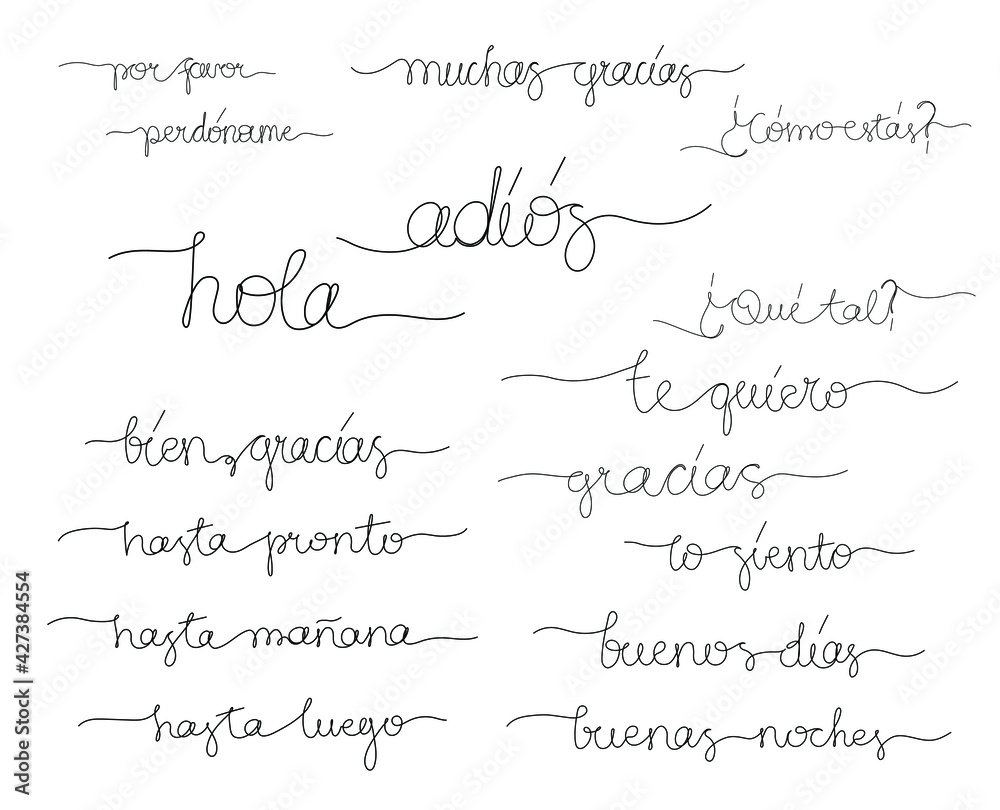 por favor
muchas gracias
perdóname
¿Cómo estás?
adiós
hola
¿Qué tal?
te quiero
bien, gracias
gracias
hasta pronto
lo siento
hasta mañana
buenos días
hasta luego
buenas noches
Adobe Stock | #427384554